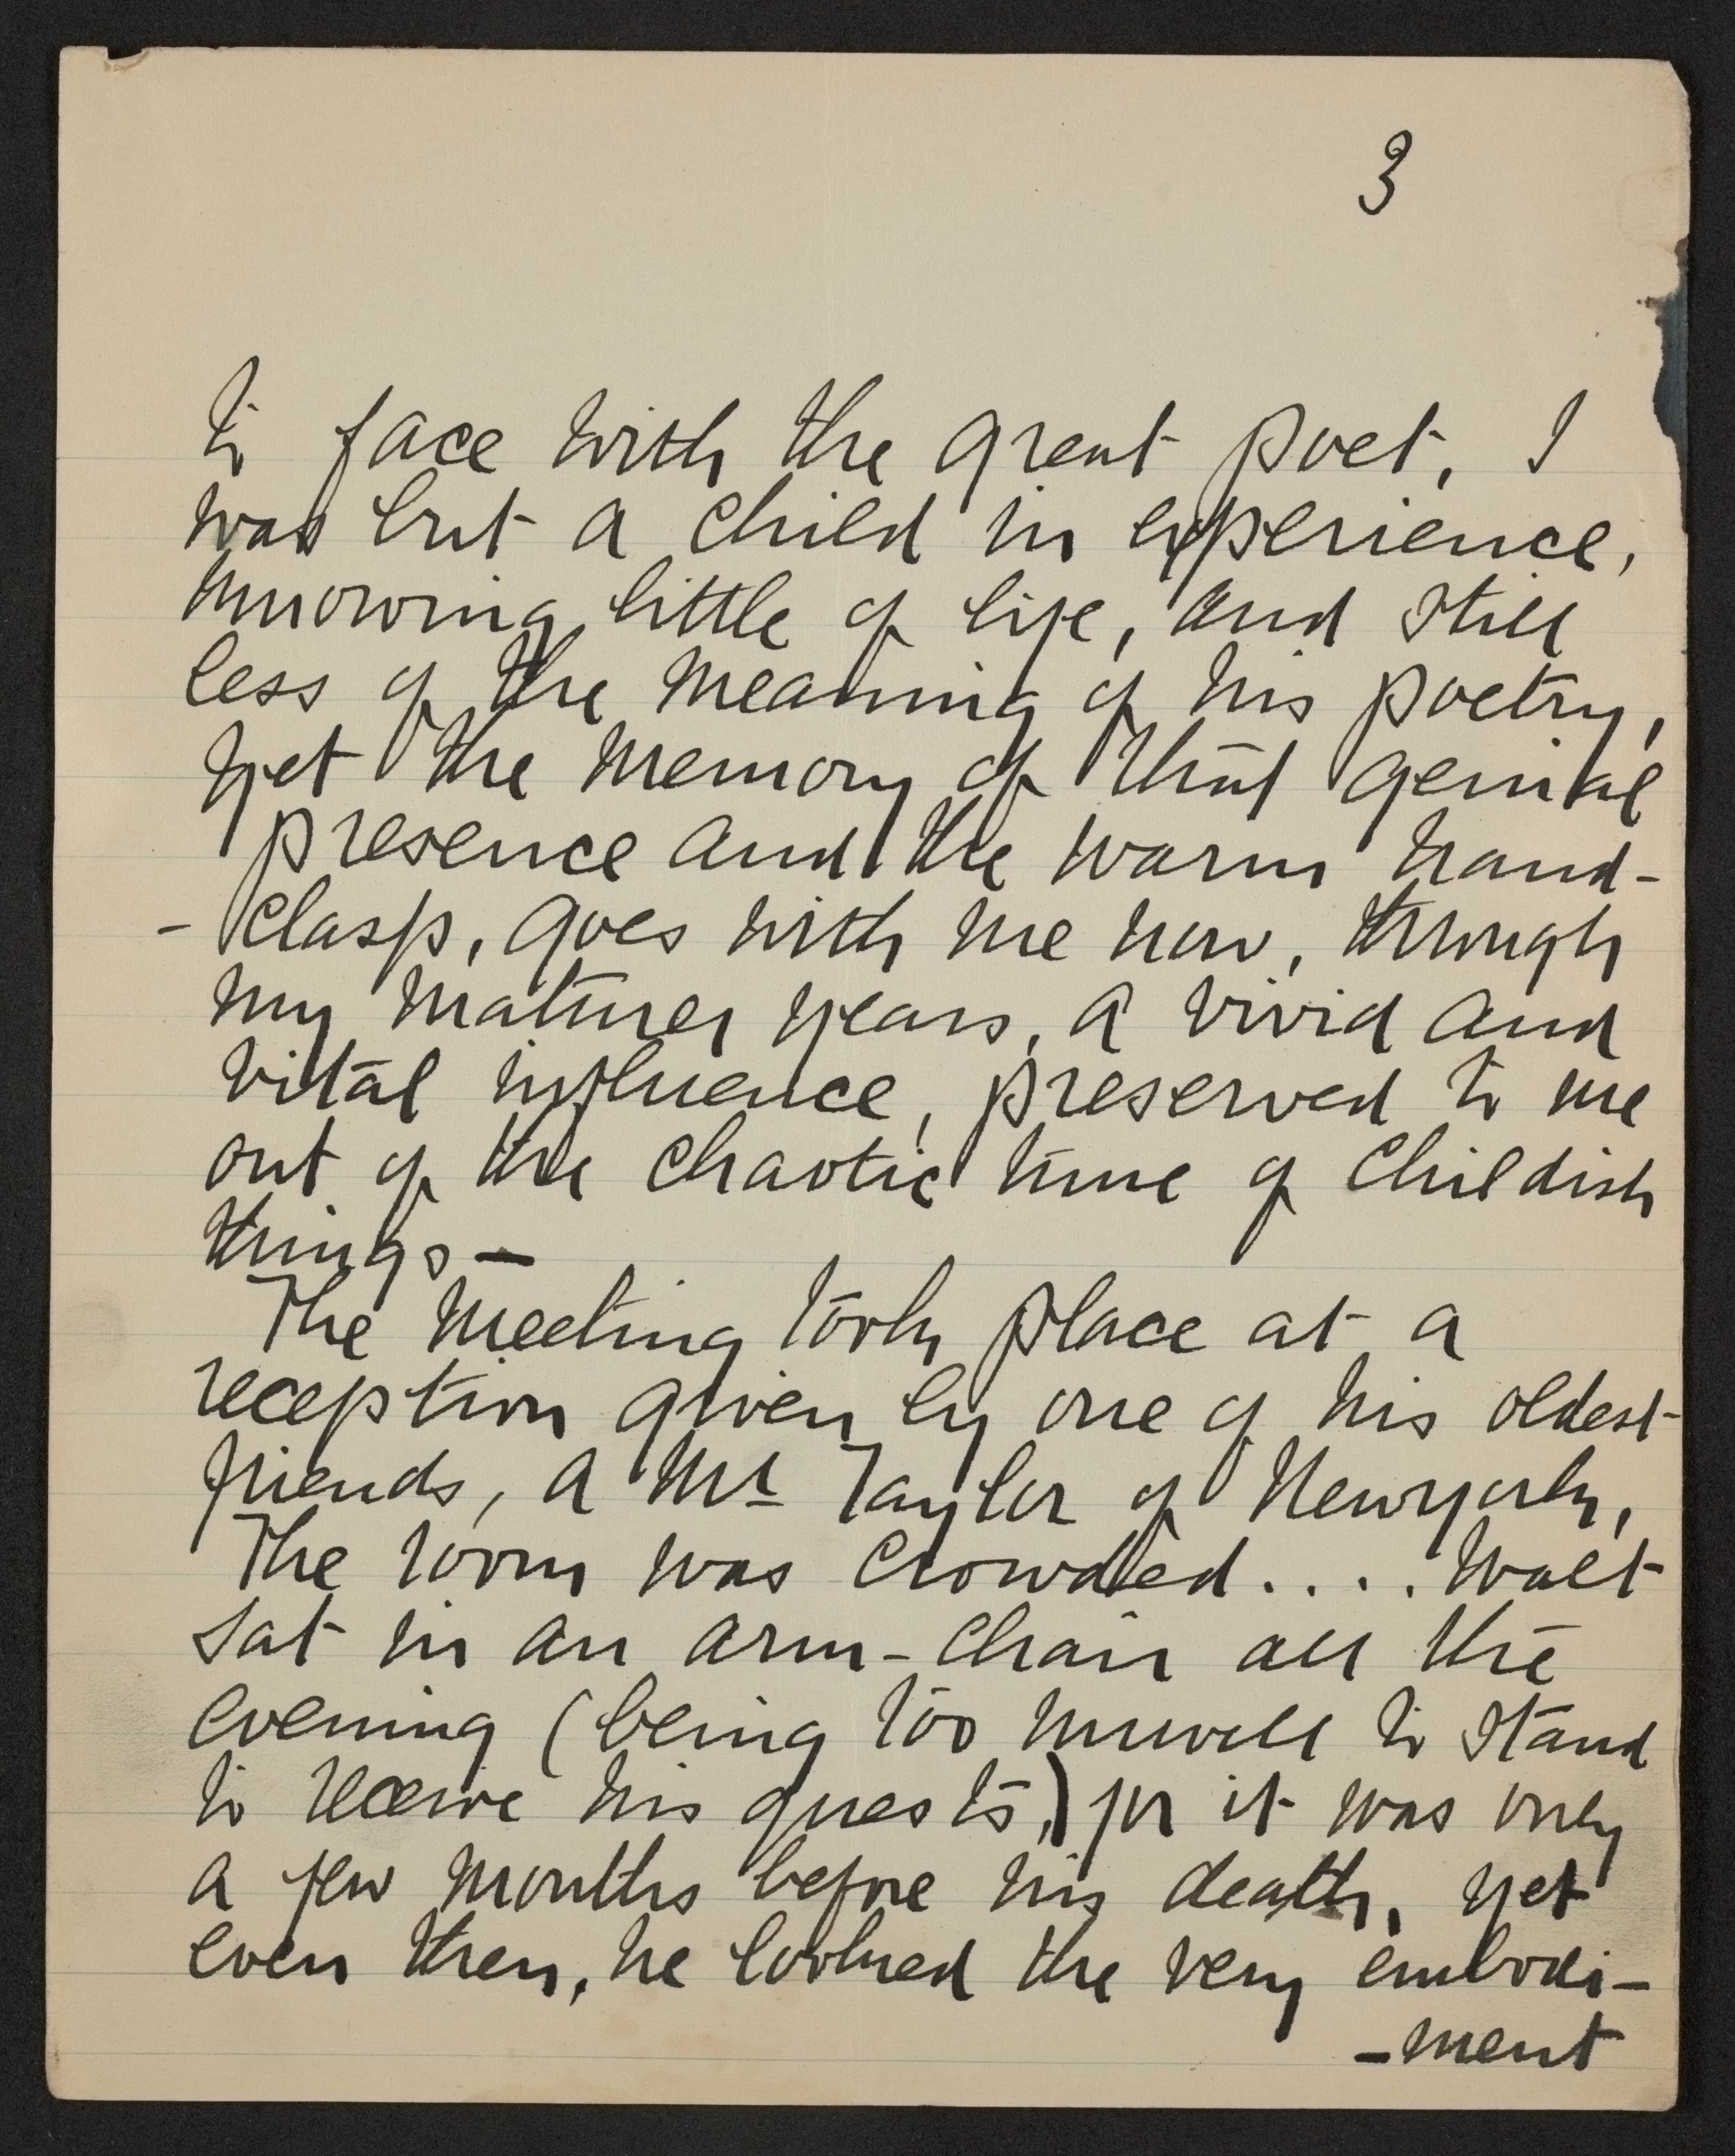 3
to face with the great poet, I
was but a child in experience,
knowing little of life, and still
less of the meaning of his poetry,
yet the memory of that genial
presence and the warm hand-
-clasp, goes with me now, through
my maturer years, a vivid and
vital influence, preserved to me
out of the chaotic time of childish
things —
The meeting took place at a
reception given by one of his oldest
friends, a Mr Taylor of Newyork,
The room was crowded.... Walt
sat in an arm-chair all the
evening (being too unwell to stand
to receive his guests,) for it was only
a few months before his death, yet
even then, he looked the very embodi-
-ment